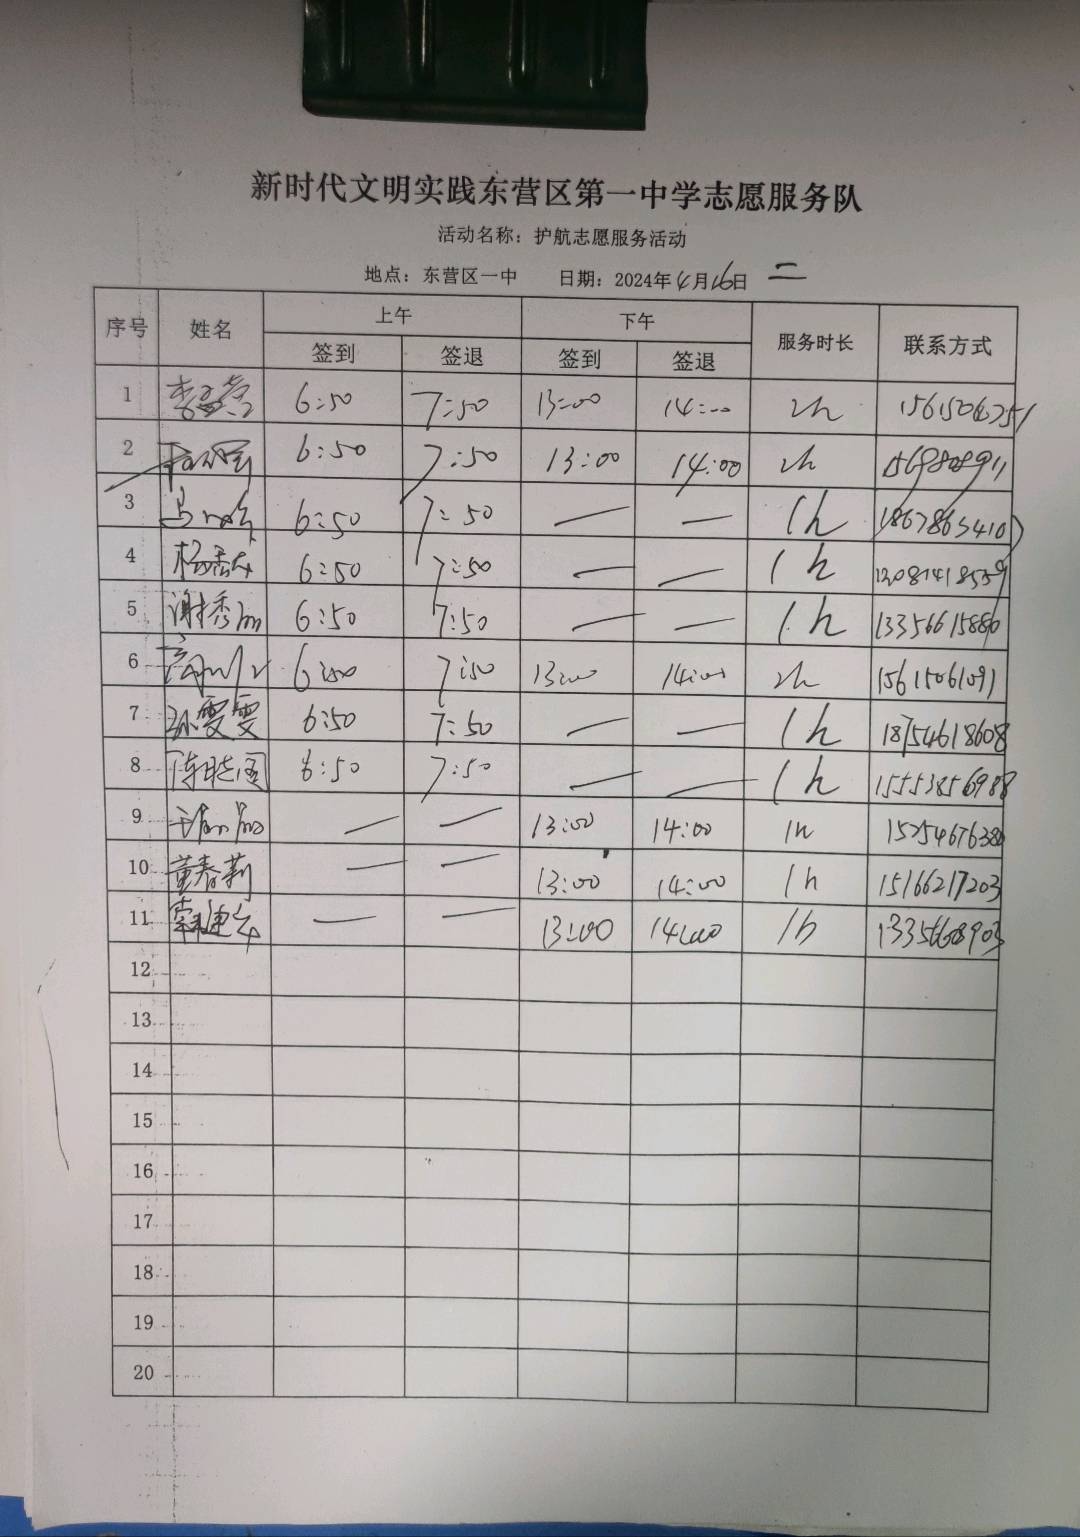 新时代文明实践东营区第一中学志愿服务队
活动名称：护航志愿服务活动
地点：东营区一中 日期：2024年4月16日 二
序号 姓名 上午 下午 服务时长 联系方式
签到 签退 签到 签退
1 6:50 7:50 13:00 14:00 2h
2 6:50 7:50 13:00 14:00 2h
3 6:50 7:50 — — 1h 18678653410
4 6:50 7:50 — — 1h
5 6:50 7:50 — — 1h 13356615886
6 6:50 7:50 13:00 14:00 2h 15615061091
7 孙雯雯 6:50 7:50 — — 1h 18754618608
8 陈晓周 6:50 7:50 — — 1h 15553856988
9 — — 13:00 14:00 1h 15254676380
10 董春莉 — — 13:00 14:00 1h 15166217203
11 — — 13:00 14:00 1h 13356608903
12
13
14
15
16
17
18
19
20